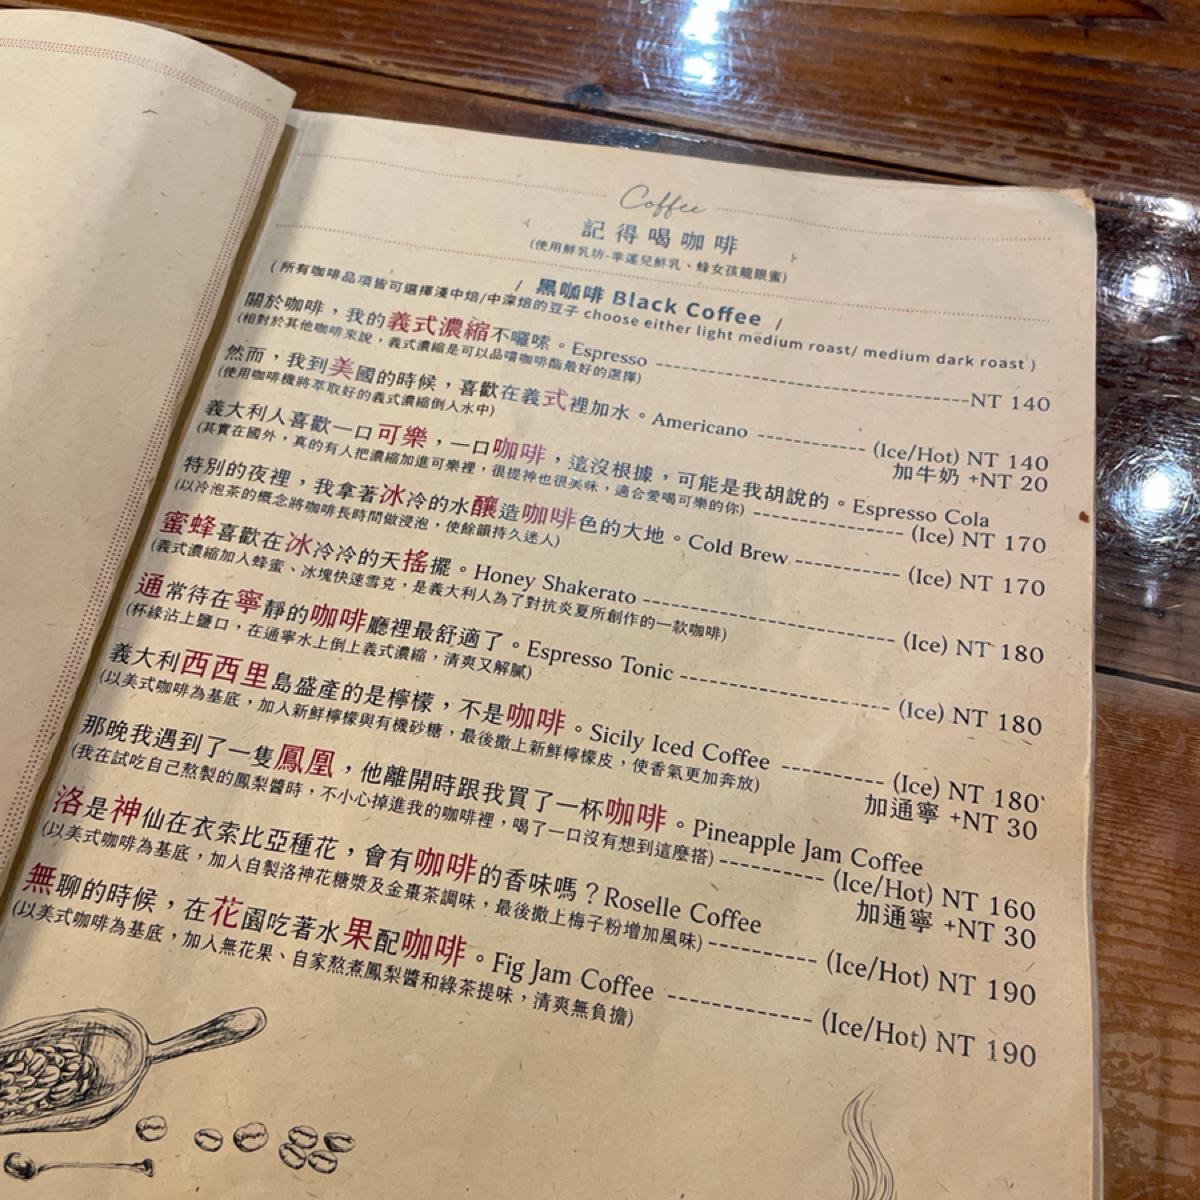 Coffee
記得喝咖啡
(使用鮮乳坊-幸運兒鮮乳、蜂女孩龍眼蜜)
/ 黑咖啡 Black Coffee /
(所有咖啡品項皆可選擇淺中焙/中深焙的豆子 choose either light medium roast/ medium dark roast)
關於咖啡，我的義式濃縮不囉嗦。Espresso ---NT 140
(相對於其他咖啡來說，義式濃縮是可以品嚐咖啡酯最好的選擇)
然而，我到美國的時候，喜歡在義式裡加水。Americano --- (Ice/Hot) NT 140
(使用咖啡機將萃取好的義式濃縮倒入水中)
加牛奶 +NT 20
義大利人喜歡一口可樂，一口咖啡，這沒根據，可能是我胡說的。Espresso Cola
(其實在國外，真的有人把濃縮加進可樂裡，很提神也很美味，適合愛喝可樂的你) --- (Ice) NT 170
特別的夜裡，我拿著冰冷的水釀造咖啡色的大地。Cold Brew --- (Ice) NT 170
(以冷泡茶的概念將咖啡長時間做浸泡，使餘韻持久迷人)
蜜蜂喜歡在冰冷冷的天搖擺。Honey Shakerato --- (Ice) NT 180
(義式濃縮加入蜂蜜、冰塊快速雪克，是義大利人為了對抗炎夏所創作的一款咖啡)
通常待在寧靜的咖啡廳裡最舒適了。Espresso Tonic --- (Ice) NT 180
(杯緣沾上鹽口，在通寧水上倒上義式濃縮，清爽又解膩)
義大利西西里島盛產的是檸檬，不是咖啡。Sicily Iced Coffee --- (Ice) NT 180
(以美式咖啡為基底，加入新鮮檸檬與有機砂糖，最後撒上新鮮檸檬皮，使香氣更加奔放)
加通寧 +NT 30
那晚我遇到了一隻鳳凰，他離開時跟我買了一杯咖啡。Pineapple Jam Coffee
(我在試吃自己熬製的鳳梨醬時，不小心掉進我的咖啡裡，喝了一口沒有想到這麼搭) --- (Ice/Hot) NT 160
加通寧 +NT 30
洛是神仙在衣索比亞種花，會有咖啡的香味嗎？Roselle Coffee
(以美式咖啡為基底，加入自製洛神花糖漿及金棗茶調味，最後撒上梅子粉增加風味) --- (Ice/Hot) NT 190
無聊的時候，在花園吃著水果配咖啡。Fig Jam Coffee --- (Ice/Hot) NT 190
(以美式咖啡為基底，加入無花果、自家熬煮鳳梨醬和綠茶提味，清爽無負擔)